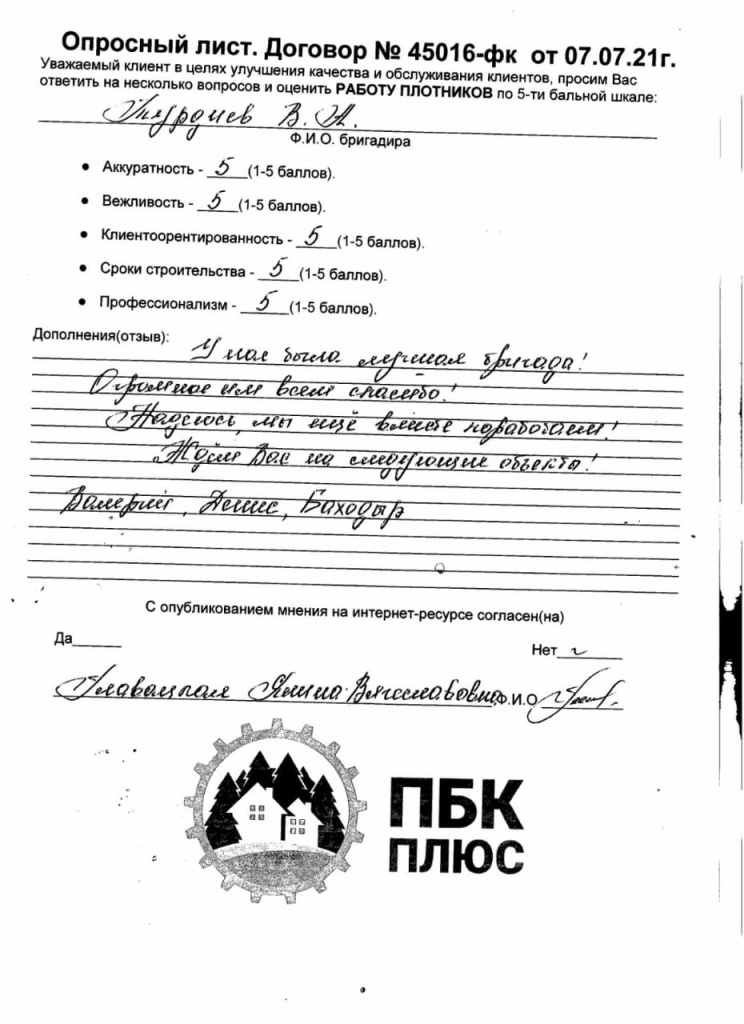 Опросный лист. Договор № 45016-фк от 07.07.21г.
Уважаемый клиент в целях улучшения качества и обслуживания клиентов, просим Вас
ответить на несколько вопросов и оценить РАБОТУ ПЛОТНИКОВ по 5-ти бальной шкале:
В. А.
Ф.И.О. бригадира
• Аккуратность - 5 (1-5 баллов).
• Вежливость - 5 (1-5 баллов).
• Клиентоорентированность - 5 (1-5 баллов).
• Сроки строительства - 5 (1-5 баллов).
• Профессионализм - 5 (1-5 баллов).
Дополнения(отзыв):
У нас была лучшая бригада!
Огромное им всем спасибо!
Надеюсь, мы ещё вместе поработаем!
Ждём Вас на следующие объекты!
Валерий, Денис, Баходыр
С опубликованием мнения на интернет-ресурсе согласен(на)
Да______
Нет
Вячеславовна Ф.И.О
ПБК
ПЛЮС